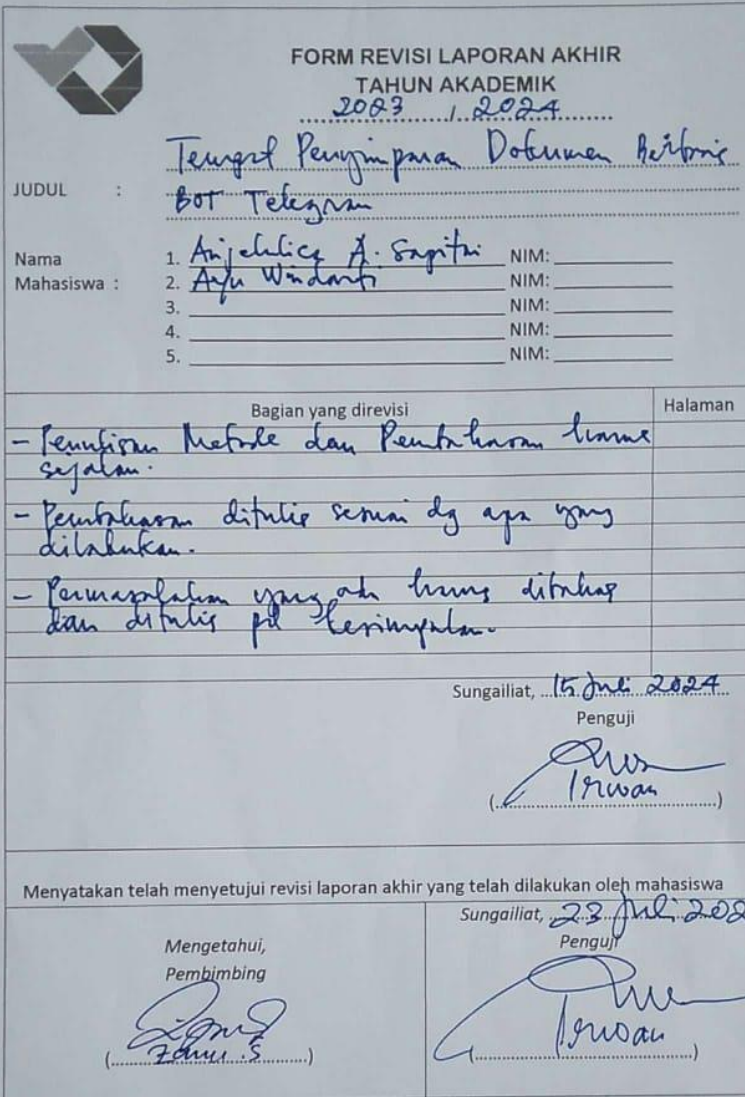 FORM REVISI LAPORAN AKHIR
TAHUN AKADEMIK
2023 / 2024
Tempat Penyimpanan Dokumen Berbasis
JUDUL :
BOT Telegram
Nama
Mahasiswa :
1. A. Sapitri NIM:
2. Ayu Windarti NIM:
3. NIM:
4. NIM:
5. NIM:
Bagian yang direvisi Halaman
- Penulisan Metode dan Pembahasan harus
sejalan.
- Pembahasan ditulis sesuai dg apa yang
dilakukan.
- Permasalahan yang ada harus dibahas
dan ditulis pd kesimpulan.
Sungailiat, 15 Juli 2024
Penguji
(Irwan)
Menyatakan telah menyetujui revisi laporan akhir yang telah dilakukan oleh mahasiswa
Mengetahui,
Pembimbing
Sungailiat, 23 Juli 202
Penguji
(Irwan)